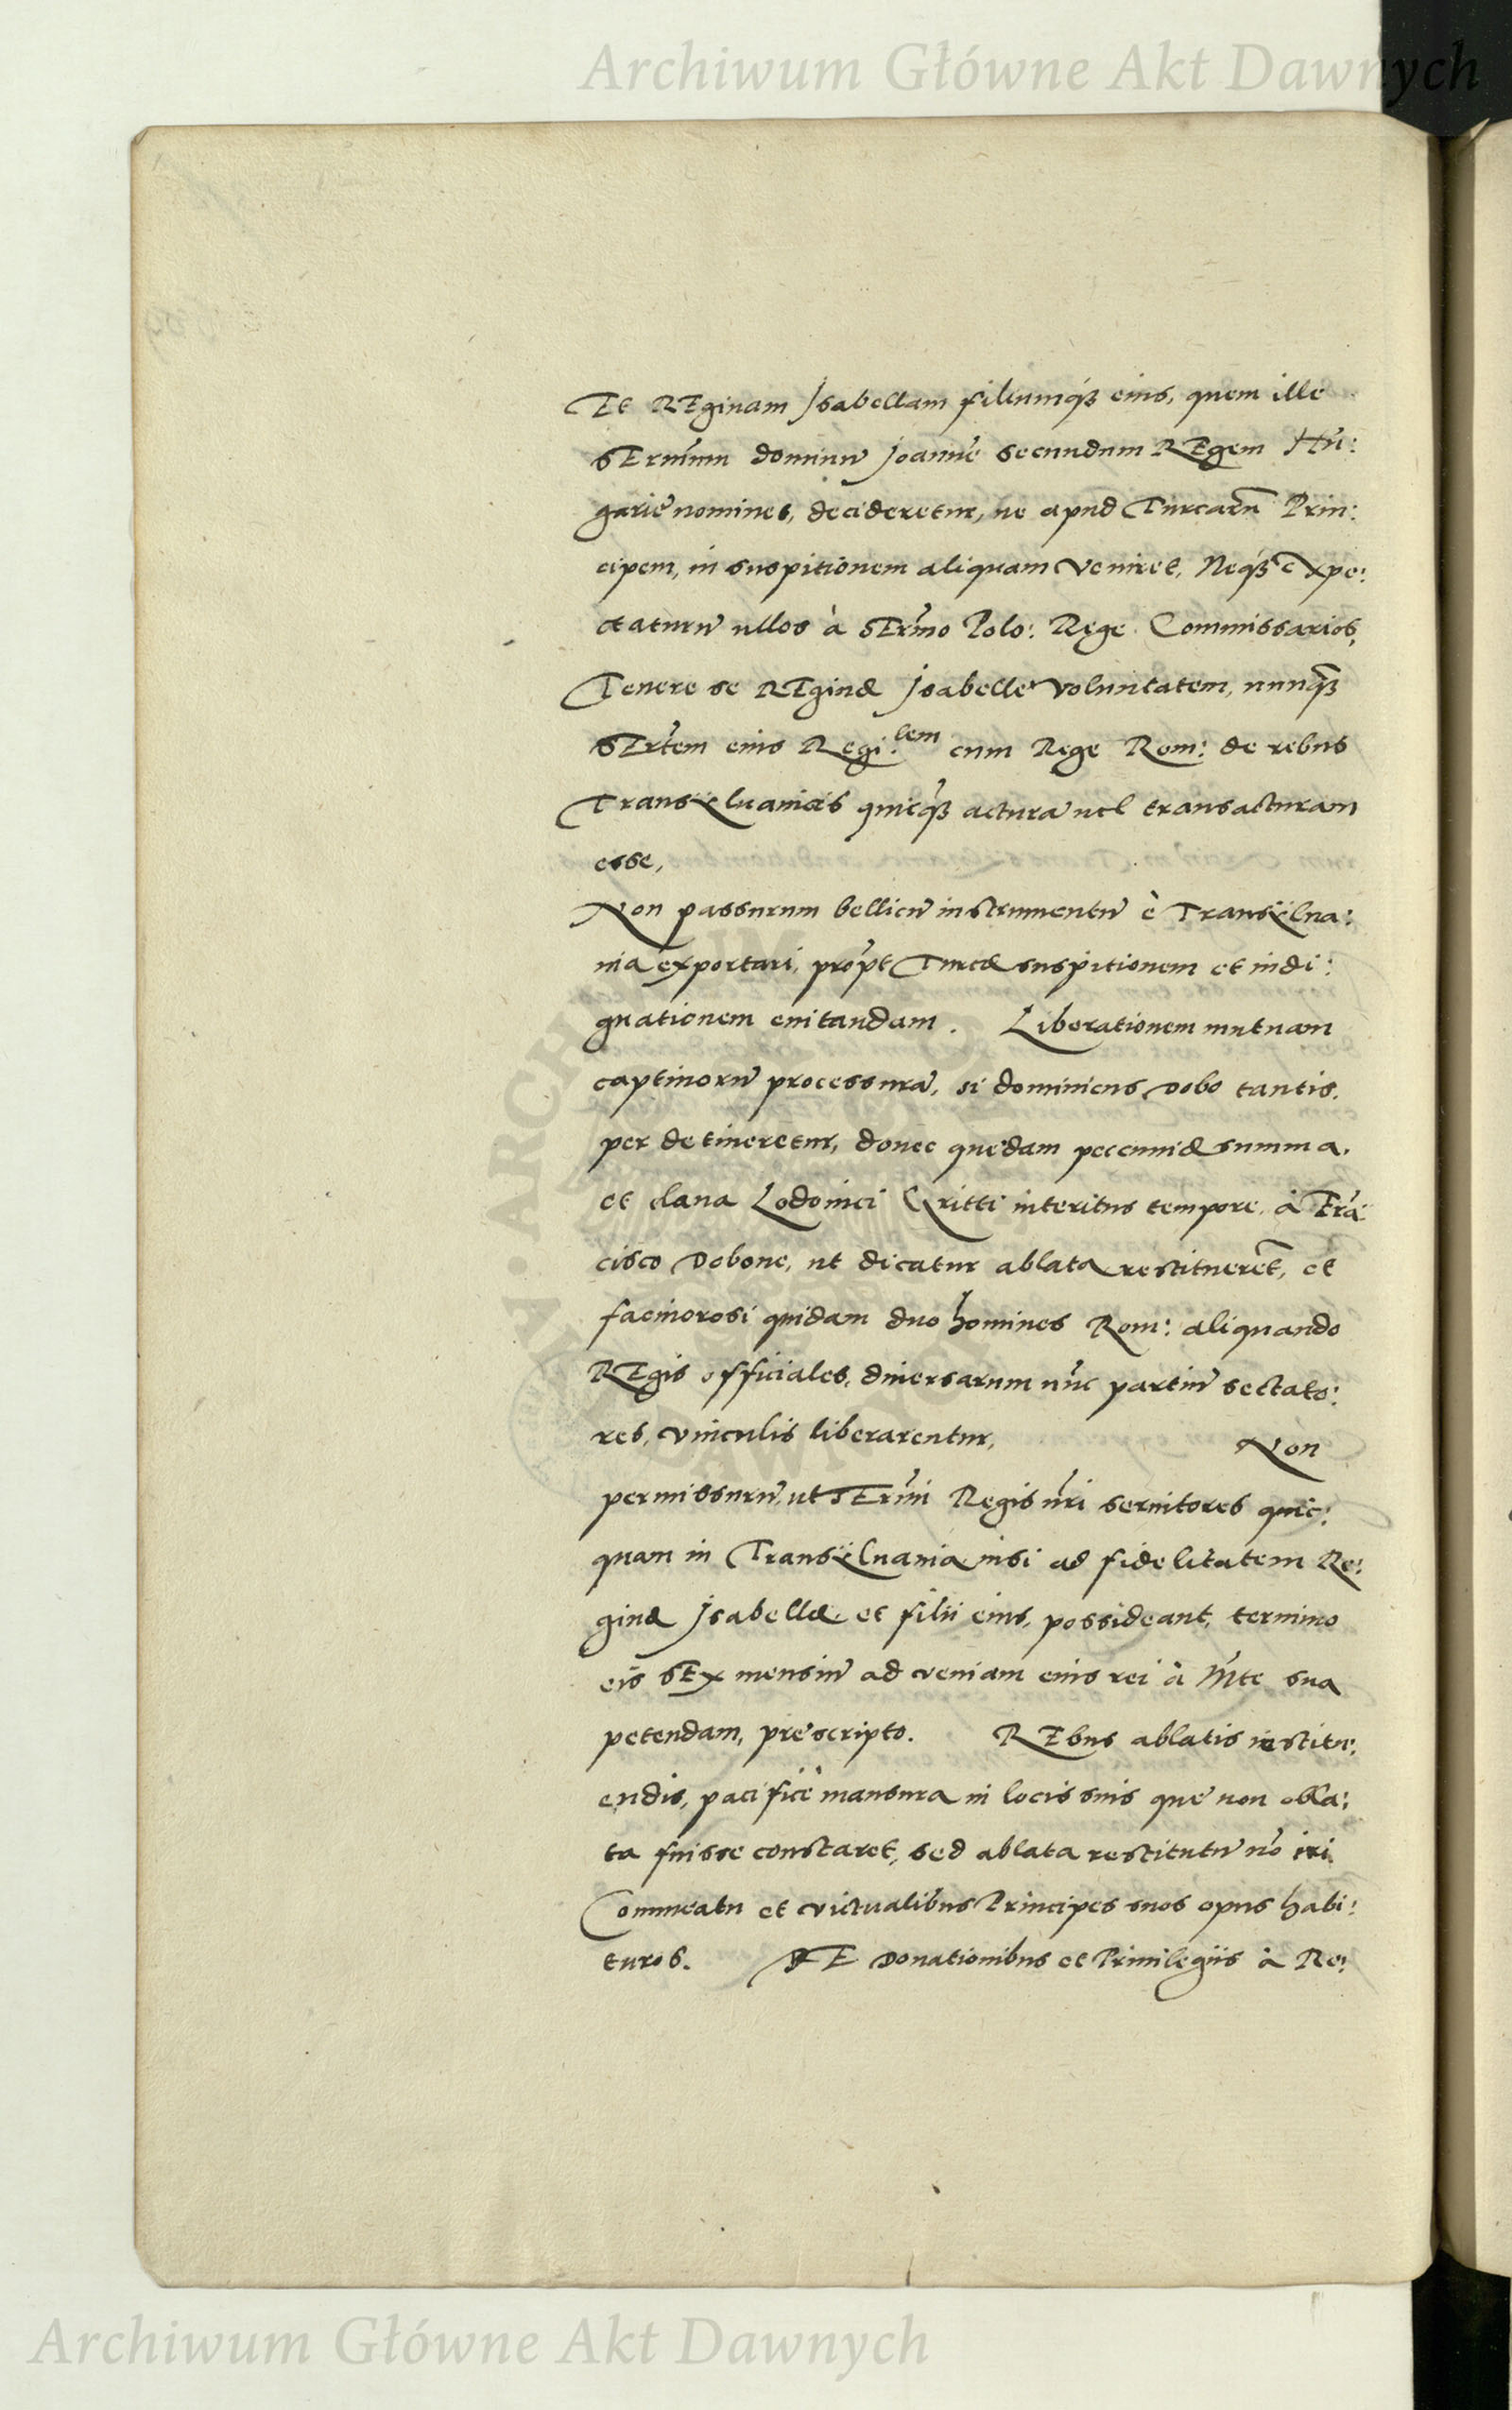 Archiwum Główne Akt Dawnych
Et REginam Jsabellam filiumq́ꝫ eius, quem ille
sErm̃um dominũ Joannẽ secundum REgem Hũ:
garię nomines, decideretur, ne apud Turcarũ Prin:
cipem, in suspitionem aliquam veniret, Neq́ꝫ Expe:
ctaturũ ullos à sErm̃o Polo: Rege Commissarios,
Tenere se REginæ Jsabellę voluntatem, nunq̃ꝫ
sErt̃em eius Regi:lem cum Rege Rom: de rebus
Transÿluanicis quicq̃ꝫ acturã uel transacturam
esse,
Non passurum bellicũ instrumentũ è Transÿlua:
nia exportari, prop̃t Turcæ suspitionem et indi:
gnationem euitandam. Liberationem mutuam
captiuorũ processurã, si dominicus Dobo tantis.
per detineretur, donec quędam pecuniæ summa,
et claua Lodouici Gritti interitus tempore, à Frã
cisco Dobone, ut dicatur ablata restitueret̃, et
facinorosi quidam duo homines Rom: aliquando
REgis officiales, diuersarum nũc partiũ sectato:
res, vinculis liberarentur, Non
permissurũ, ut sErm̃i Regis nr̃i seruitores quic:
quam in Transÿluania nisi ad fidelitatem Re:
ginæ Jsabellæ et filii eius, possideant, termino
eis sEx mensiũ ad veniam eius rei à Mt̃e sua
petendam, pręscripto. REbus ablatis restitu:
endis, pacificè mansura in locis suis quę non abla:
ta fuisse constaret, sed ablata restitutũ nõ iri
Commeatu et victualibus Principes suos opus habi:
turos. DE Donationibus et Priuilegiis à Re:
Archiwum Główne Akt Dawnych